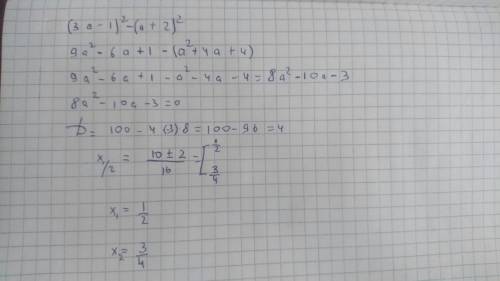 (3a-1)²-(a+2)²
9a²-6a+1-(a²+4a+4)
9a²-6a+1-a²-4a-4=8a²-10a-3
8a²-10a-3=0
D=100-4(3)8=100-96=4
x₁/₂ = (10±2)/16 = [1/2 3/4
x₁ = 1/2
x₂ = 3/4